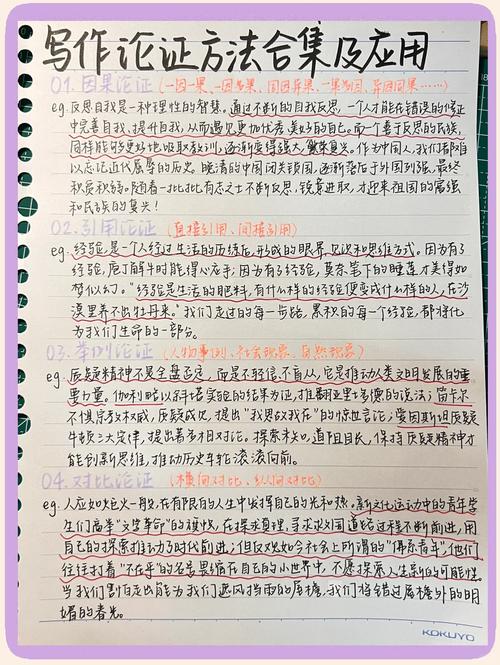 写作论证方法合集及应用
01. 因果论证 (一因一果、一因多果、同因异果、一果多因、异因同果……)
eg. 反思自我是一种理性的智慧。通过不断的自我反思，一个人才能在错误的修正
中完善自我、提升自我，从而遇见更加优秀、美好的自己。而一个善于反思的民族，
同样能够更好地吸取教训，逐渐变得强大、繁荣复兴。作为中国人，我们都难
以忘记近代屈辱的历史。晚清的中国闭关锁国，逐渐落后于外国列强，最终
积贫积弱。随着一批批有志之士不断反思，锐意进取，才迎来祖国的富强
和民族的复兴！
02. 引用论证 (直接引用、间接引用)
eg. 经验，是一个人经过生活的历练后，形成的眼界、见识和思维方式。因为有了
经验，庖丁解牛时能得心应手；因为有了经验，莫奈笔下的睡莲才美得如
梦似幻。"经验是生活的肥料，有什么样的经验便变成什么样的人，在沙
漠里养不出牡丹来。"我们走过的每一步路，累积的每一个经验，都将化
为我们生命的一部分。
03. 举例论证 (人物事例、社会现象、自然现象)
eg. 质疑精神不是全盘否定，而是不轻信、不盲从，它是推动人类文明发展的重
要力量。伽利略以斜塔实验的结果为证，推翻亚里士多德的说法；笛卡尔
不惧宗教权威，质疑成见，提出"我思故我在"的惊世言论；爱因斯坦质疑
牛顿三大定律，提出著名相对论。探索未知，道阻且长，保持质疑精神才
能创新思维，推动历史车轮滚滚向前。
04. 对比论证 (横向对比、纵向对比)
eg. 人应如炬火一般，在有限的人生中发挥自己的光和热。新文化运动中的青年学
生们高举"文学革命"的旗帜，在探求真理、寻求救国道路过程不断前进，用
自己的探索推动了时代前进；但反观如今社会上所谓的"佛系青年"，他们
往往打着"不在乎"的名号畏缩在自己的小世界中，不愿探索人生新的可能性。
当我们害怕走出能为我们遮风挡雨的屋檐，我们将错过屋檐外的明
媚的春光。
KOKUYO